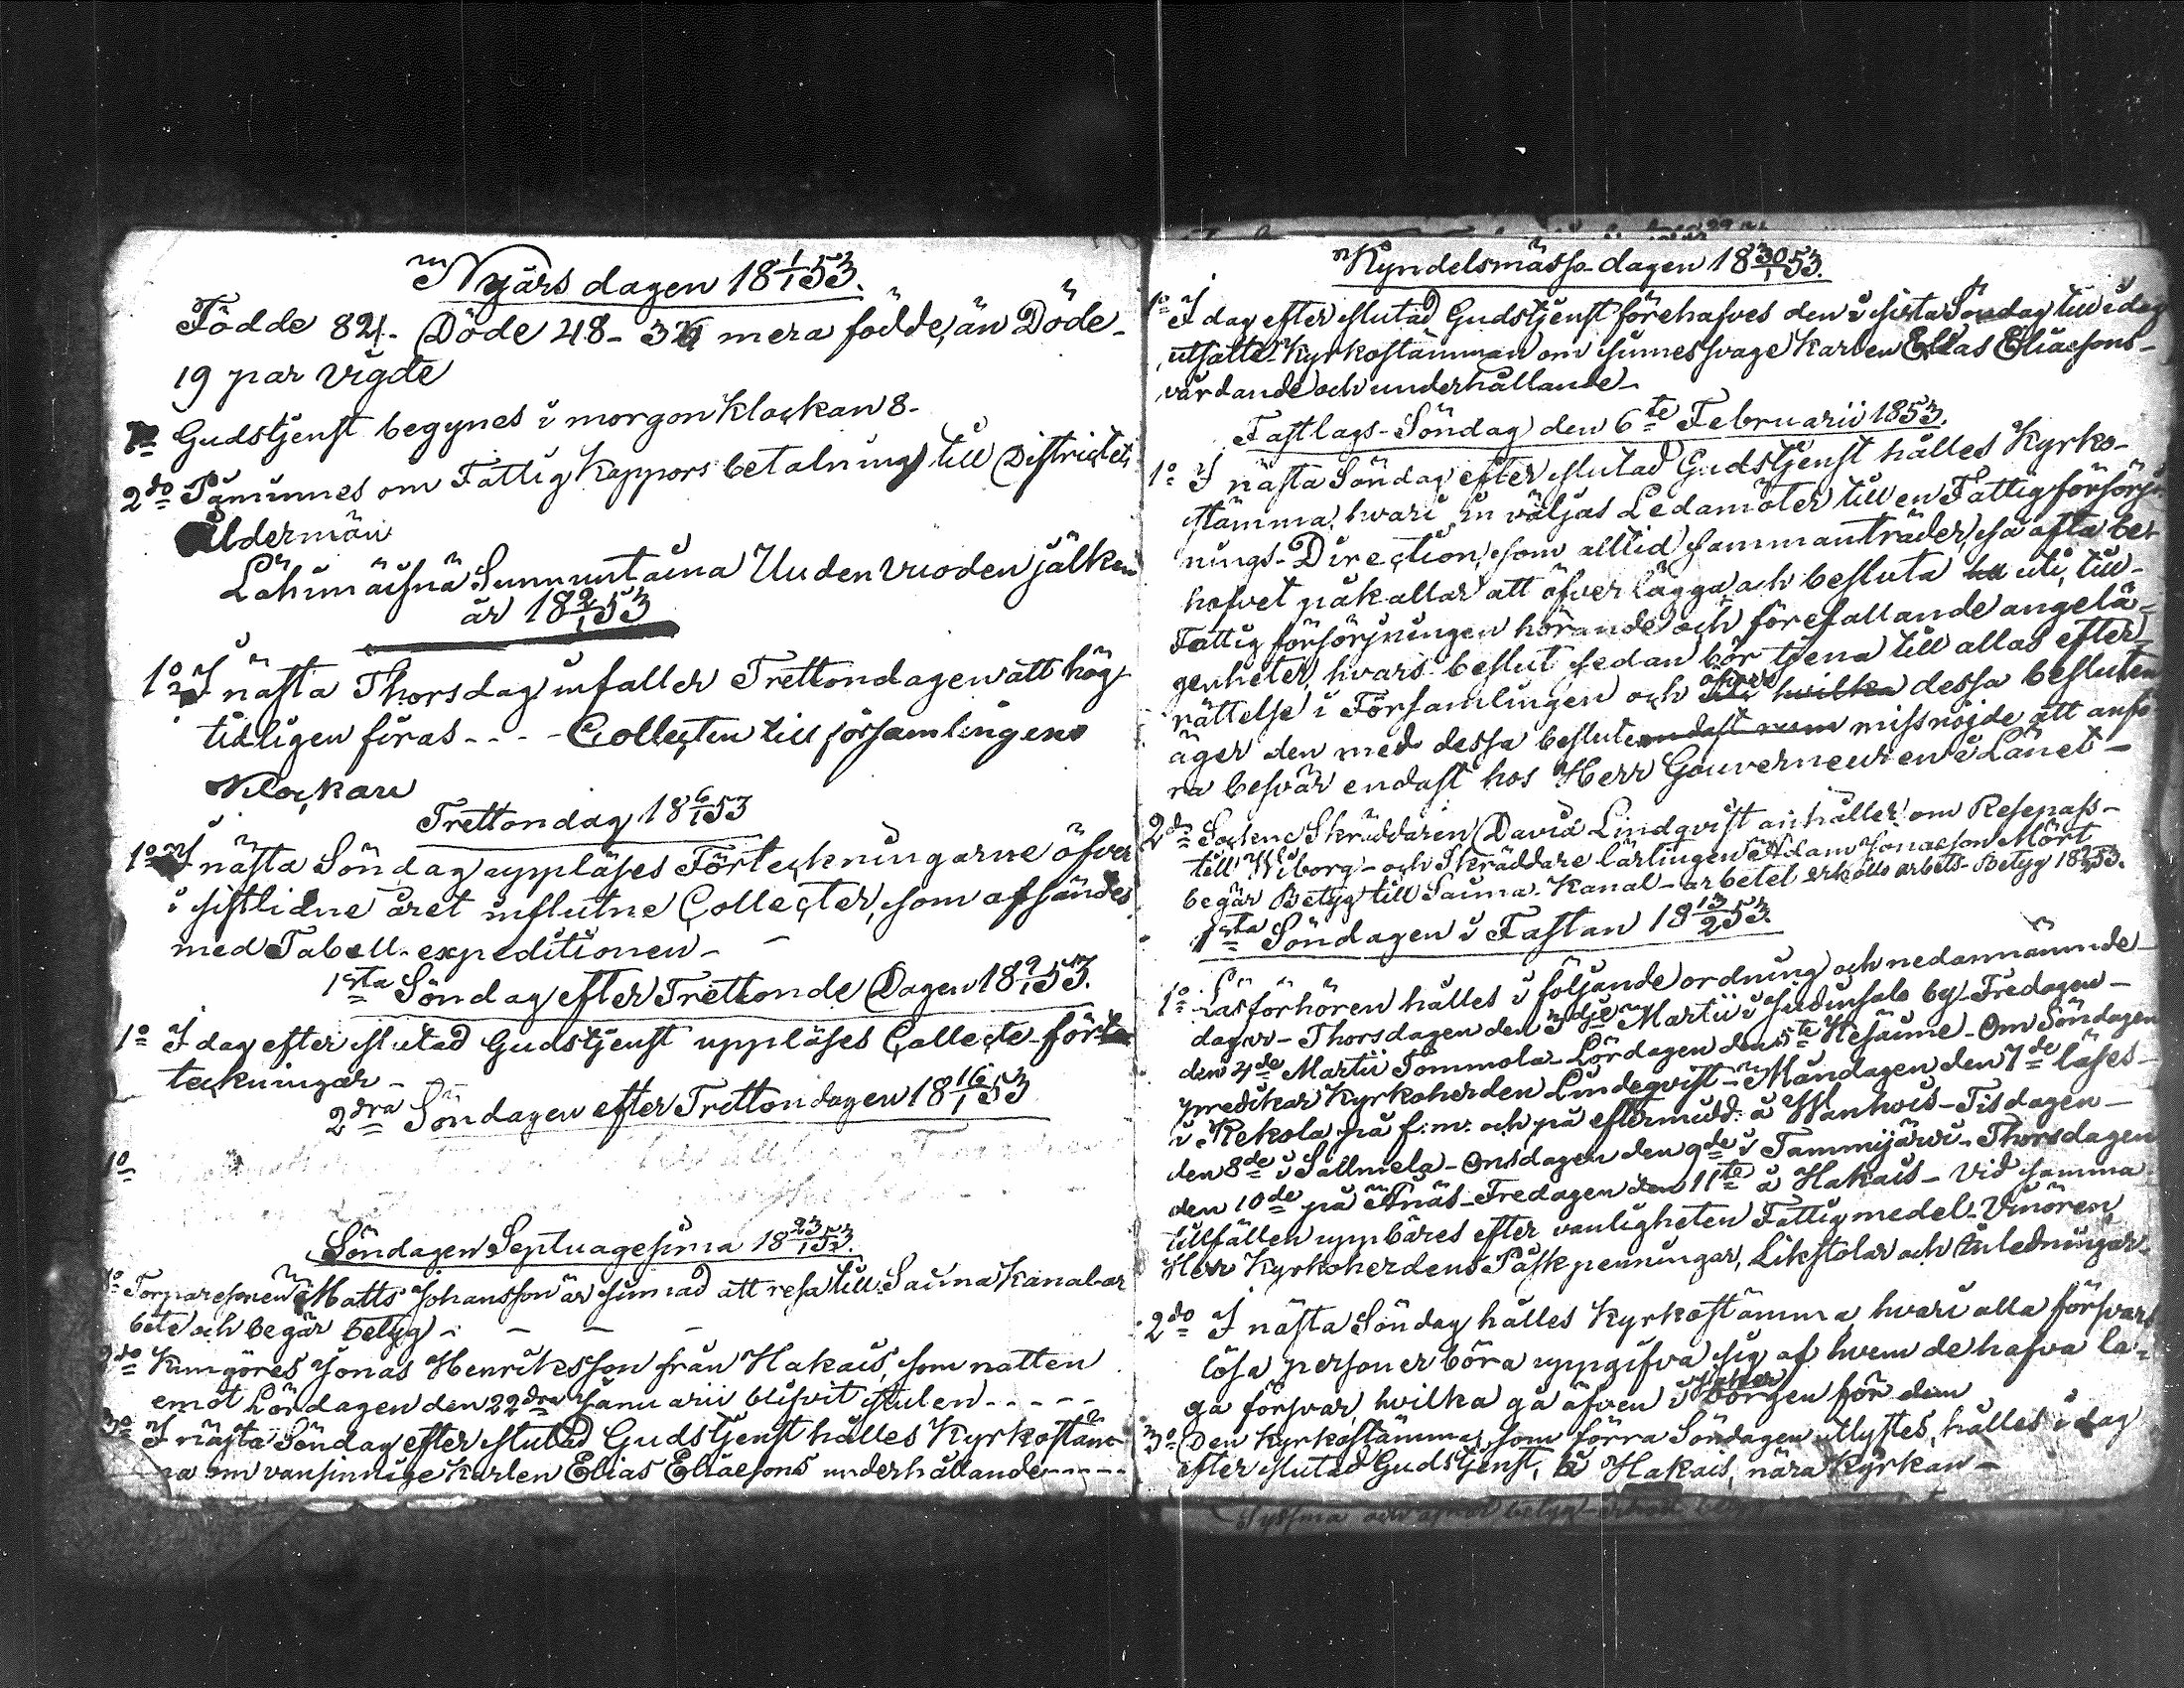 Nyårs dagen 18 1/1 53.
Födde 82. Döde 48 - 34 mera födde, än Döde -
19 par vigde
1o Gudstjenst begynes i morgon klockan 8 -
2do Påminnes om Fattig Kappors betalning till Districtets
Åldermän
Lähimäisnä Sunnuntaina Uuden Vuoden jälken
år 18 2/1 53
1o I nästa Thorsdag infaller Trettondagen att hög
tidligen firas - - - - Collecten till församlingens
Klockare
Trettondag 18 6/1 53
1o I nästa Söndag uppläses Förteckningarne öfver
i sistlidne året influtne Collecter, som afsändes
med Tabell-expeditionen -
1sta Söndag efter Trettonde Dagen 18 9/1 53.
1o I dag efter slutad Gudstjenst uppläses Collecte-för-
teckningar -
2dra Söndagen efter Trettondagen 18 16/1 53
1o
Söndagen Septuagesima 18 23/1 53.
1o Torparesonen Matts Johansson är sinnad att resa till Saima Kanal-ar
bete och begär betyg -
2do Kungöres Jonas Henriksson från Hakais, som natten
emot Lördagen den 22dra Januarii blifvit stulen - - - -
3o I nästa Söndag efter slutad Gudstjenst hålles Kyrkostäm-
ma om vansinnige Karlen Elias Eliaesons underhållande - - - -
Kyndelsmässo-dagen 18 30/1 53.
1o I dag efter slutad Gudstjenst förehafves den i sista Söndag till idag
utsatte Kyrkostämman om sinnessvage Karlen Elias Eliaesons -
vårdande och underhållande -
Fastlags-Söndag den 6te Februarii 1853.
1o I nästa Söndag efter slutad Gudstjenst hålles Kyrko-
stämma, hvari väljas Ledamöter till en Fattigförsörj-
nings-Direction, som alltid sammanträder, så ofta be-
hofvet påkallar att öfverlägga och besluta uti, till
Fattig försörjningen hörande och förefallande angelä-
genheter, hvars beslut sedan bör tjena till allas efter-
rättelse i Församlingen och öfver hvilka dessa besluten
äger den med dessa besluten missnöjde att anfö-
ra besvär endast hos Herr Gouverneuren i Länet -
2do Sockne Skräddaren David Lindqvist anhåller om Resepass -
till Wiborg - och Skräddare lärlingen Adam Jonaeson Mört
begär Betyg till Saima-Kanal-arbetet erhölls arbets-Betyg 18 9/2 53.
1sta Söndagen i Fastan 18 13/2 53.
1o Läsförhören hålles i följande ordning och nedannämnde -
dagar - Thorsdagen den 3dje Martii i by - Fredagen -
den 4de Martii Sommola - Lördagen den 5te Hesäume - Om Söndagen
predikar Kyrkoherden Lindeqvist - Måndagen den 7de läses -
i Rekola på f.m. och på eftermidd. å Wanhois - Tisdagen -
den 8de i Sallmela - Onsdagen den 9de i Tammijärvi - Thorsdagen
den 10de på Ånäs - Fredagen den 11te å Hakais - Vid samma
tillfällen uppbäres efter vanligheten Fattigmedel -
Herr Kyrkoherdens Påskpenningar, Likstolar och Inledningar -
2do I nästa Söndag hålles Kyrkostämma, hvari alla försvars
lösa personer böra uppgifva sig af hvem de hafva la-
ga försvar, hvilka gå äfven i borgen för dem
3o Den Kyrkostämma, som förra Söndagen utlystes, hålles i dag
efter slutad Gudstjenst, å Hakais, nära Kyrkan -